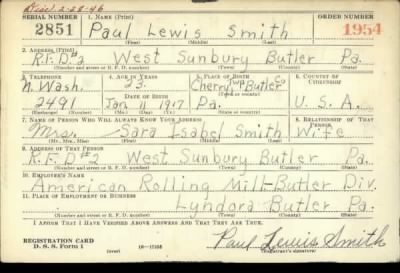 Died 2-28-46
SERIAL NUMBER 1. NAME (Print) ORDER NUMBER
2851 Paul Lewis Smith 1954
(First) (Middle) (Last)
2. ADDRESS (Print)
R.F.D.#2 West Sunbury Butler Pa.
(Number and street or R. F. D. number) (Town) (County) (State)
3. TELEPHONE 4. AGE IN YEARS 5. PLACE OF BIRTH 6. COUNTRY OF CITIZENSHIP
N. Wash. 23 Cherry Twp Butler Co
DATE OF BIRTH (Town or county)
2491 Jan 11 1917 Pa. U.S.A.
(Exchange) (Number) (Mo.) (Day) (Yr.) (State or country)
7. NAME OF PERSON WHO WILL ALWAYS KNOW YOUR ADDRESS 8. RELATIONSHIP OF THAT PERSON
Mrs. Sara Isabel Smith Wife
(Mr., Mrs., Miss) (First) (Middle) (Last)
9. ADDRESS OF THAT PERSON
R.F.D#2 West Sunbury Butler Pa.
(Number and street or R. F. D. number) (Town) (County) (State)
10. EMPLOYER'S NAME
American Rolling Mill-Butler Div.
11. PLACE OF EMPLOYMENT OR BUSINESS
Lyndora Butler Pa.
(Number and street or R. F. D. number) (Town) (County) (State)
I AFFIRM THAT I HAVE VERIFIED ABOVE ANSWERS AND THAT THEY ARE TRUE.
REGISTRATION CARD
D. S. S. Form 1 (over) Paul Lewis Smith
(Registrant's signature)